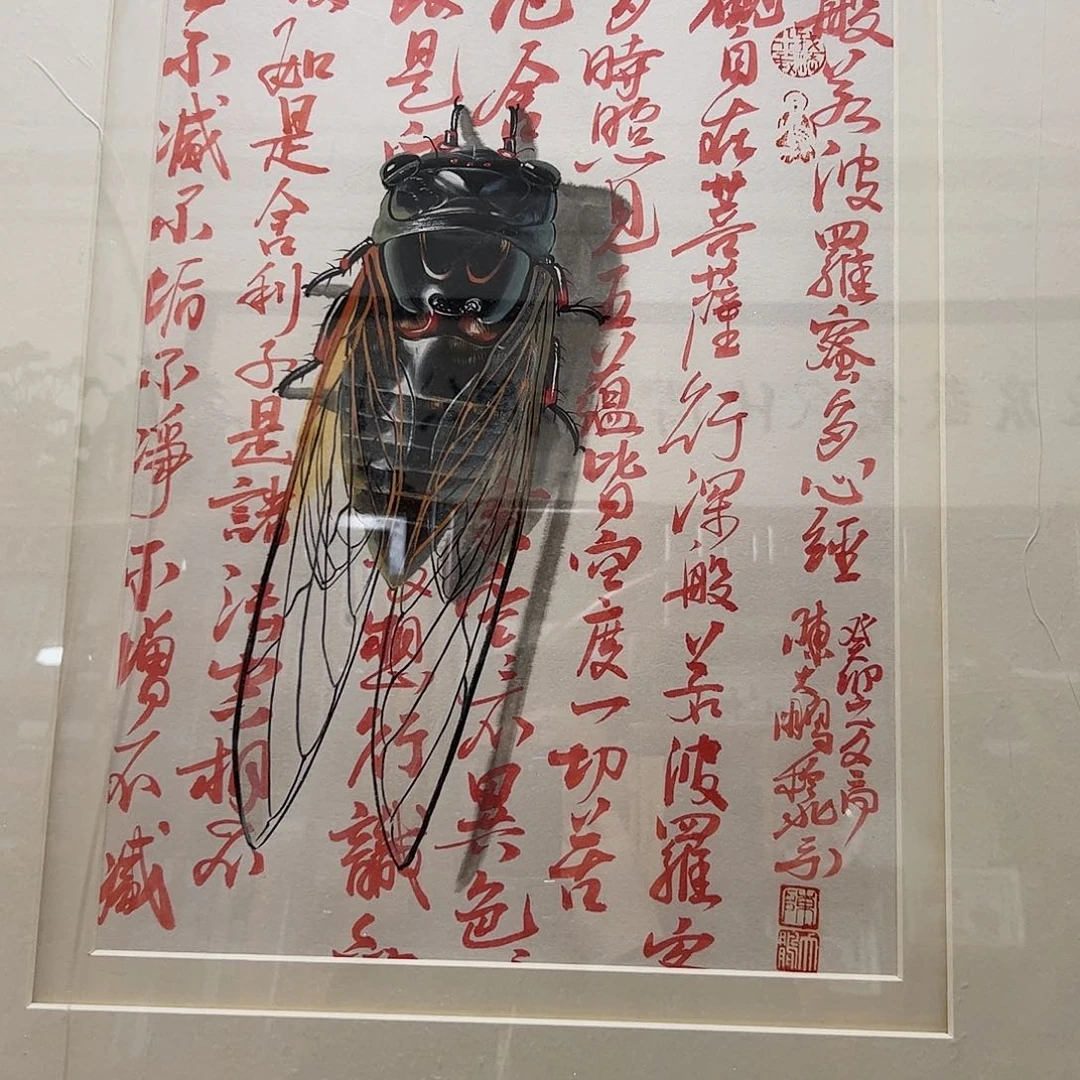 般若波羅蜜多心經
癸卯
陳大鵬
觀自在菩薩行深般若波羅
多時照見五蘊皆空度一切苦
厄舍 不異色
是 想行識
如是舍利子是諸法空相不
不減不垢不淨不增不減